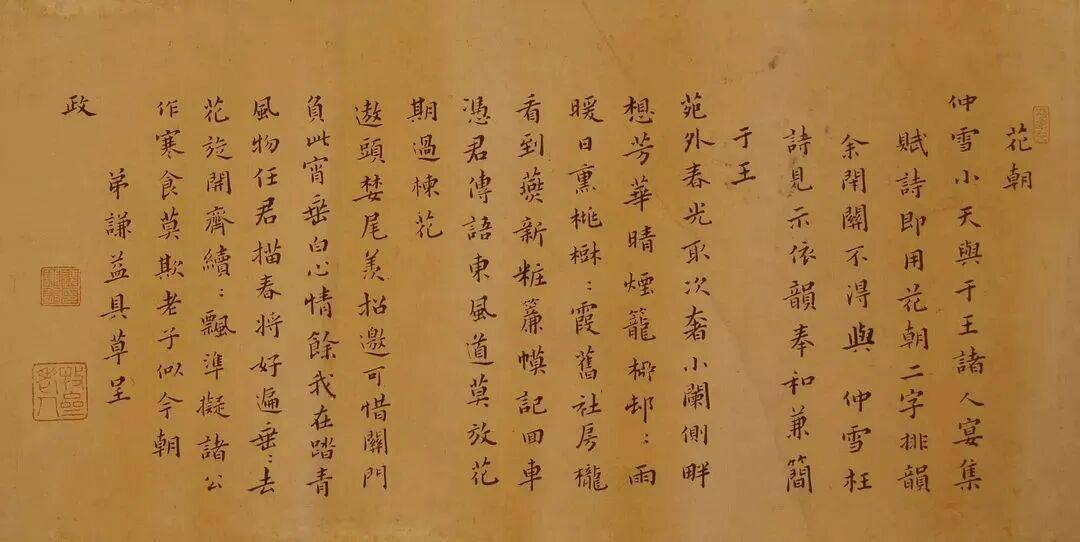 花朝
仲雪小天與于王諸人宴集
賦詩即用花朝二字排韻
余閈關不得與 仲雪枉
詩見示依韻奉和兼簡
于王
苑外春光取次奢小闌側畔
想芳華晴煙籠柳邨〻雨
暖日熏桃樹〻霞舊社房櫳
看到燕新粧簾幙記回車
憑君傳語東風道莫放花
期過楝花
遨頭婪尾羨招邀可惜關門
負此宵垂白心情餘我在踏青
風物任君描春将好遍垂〻去
花旋開齊續〻飄準擬諸公
作寒食莫欺老子似今朝
弟謙益具草呈
政
牧翁老人